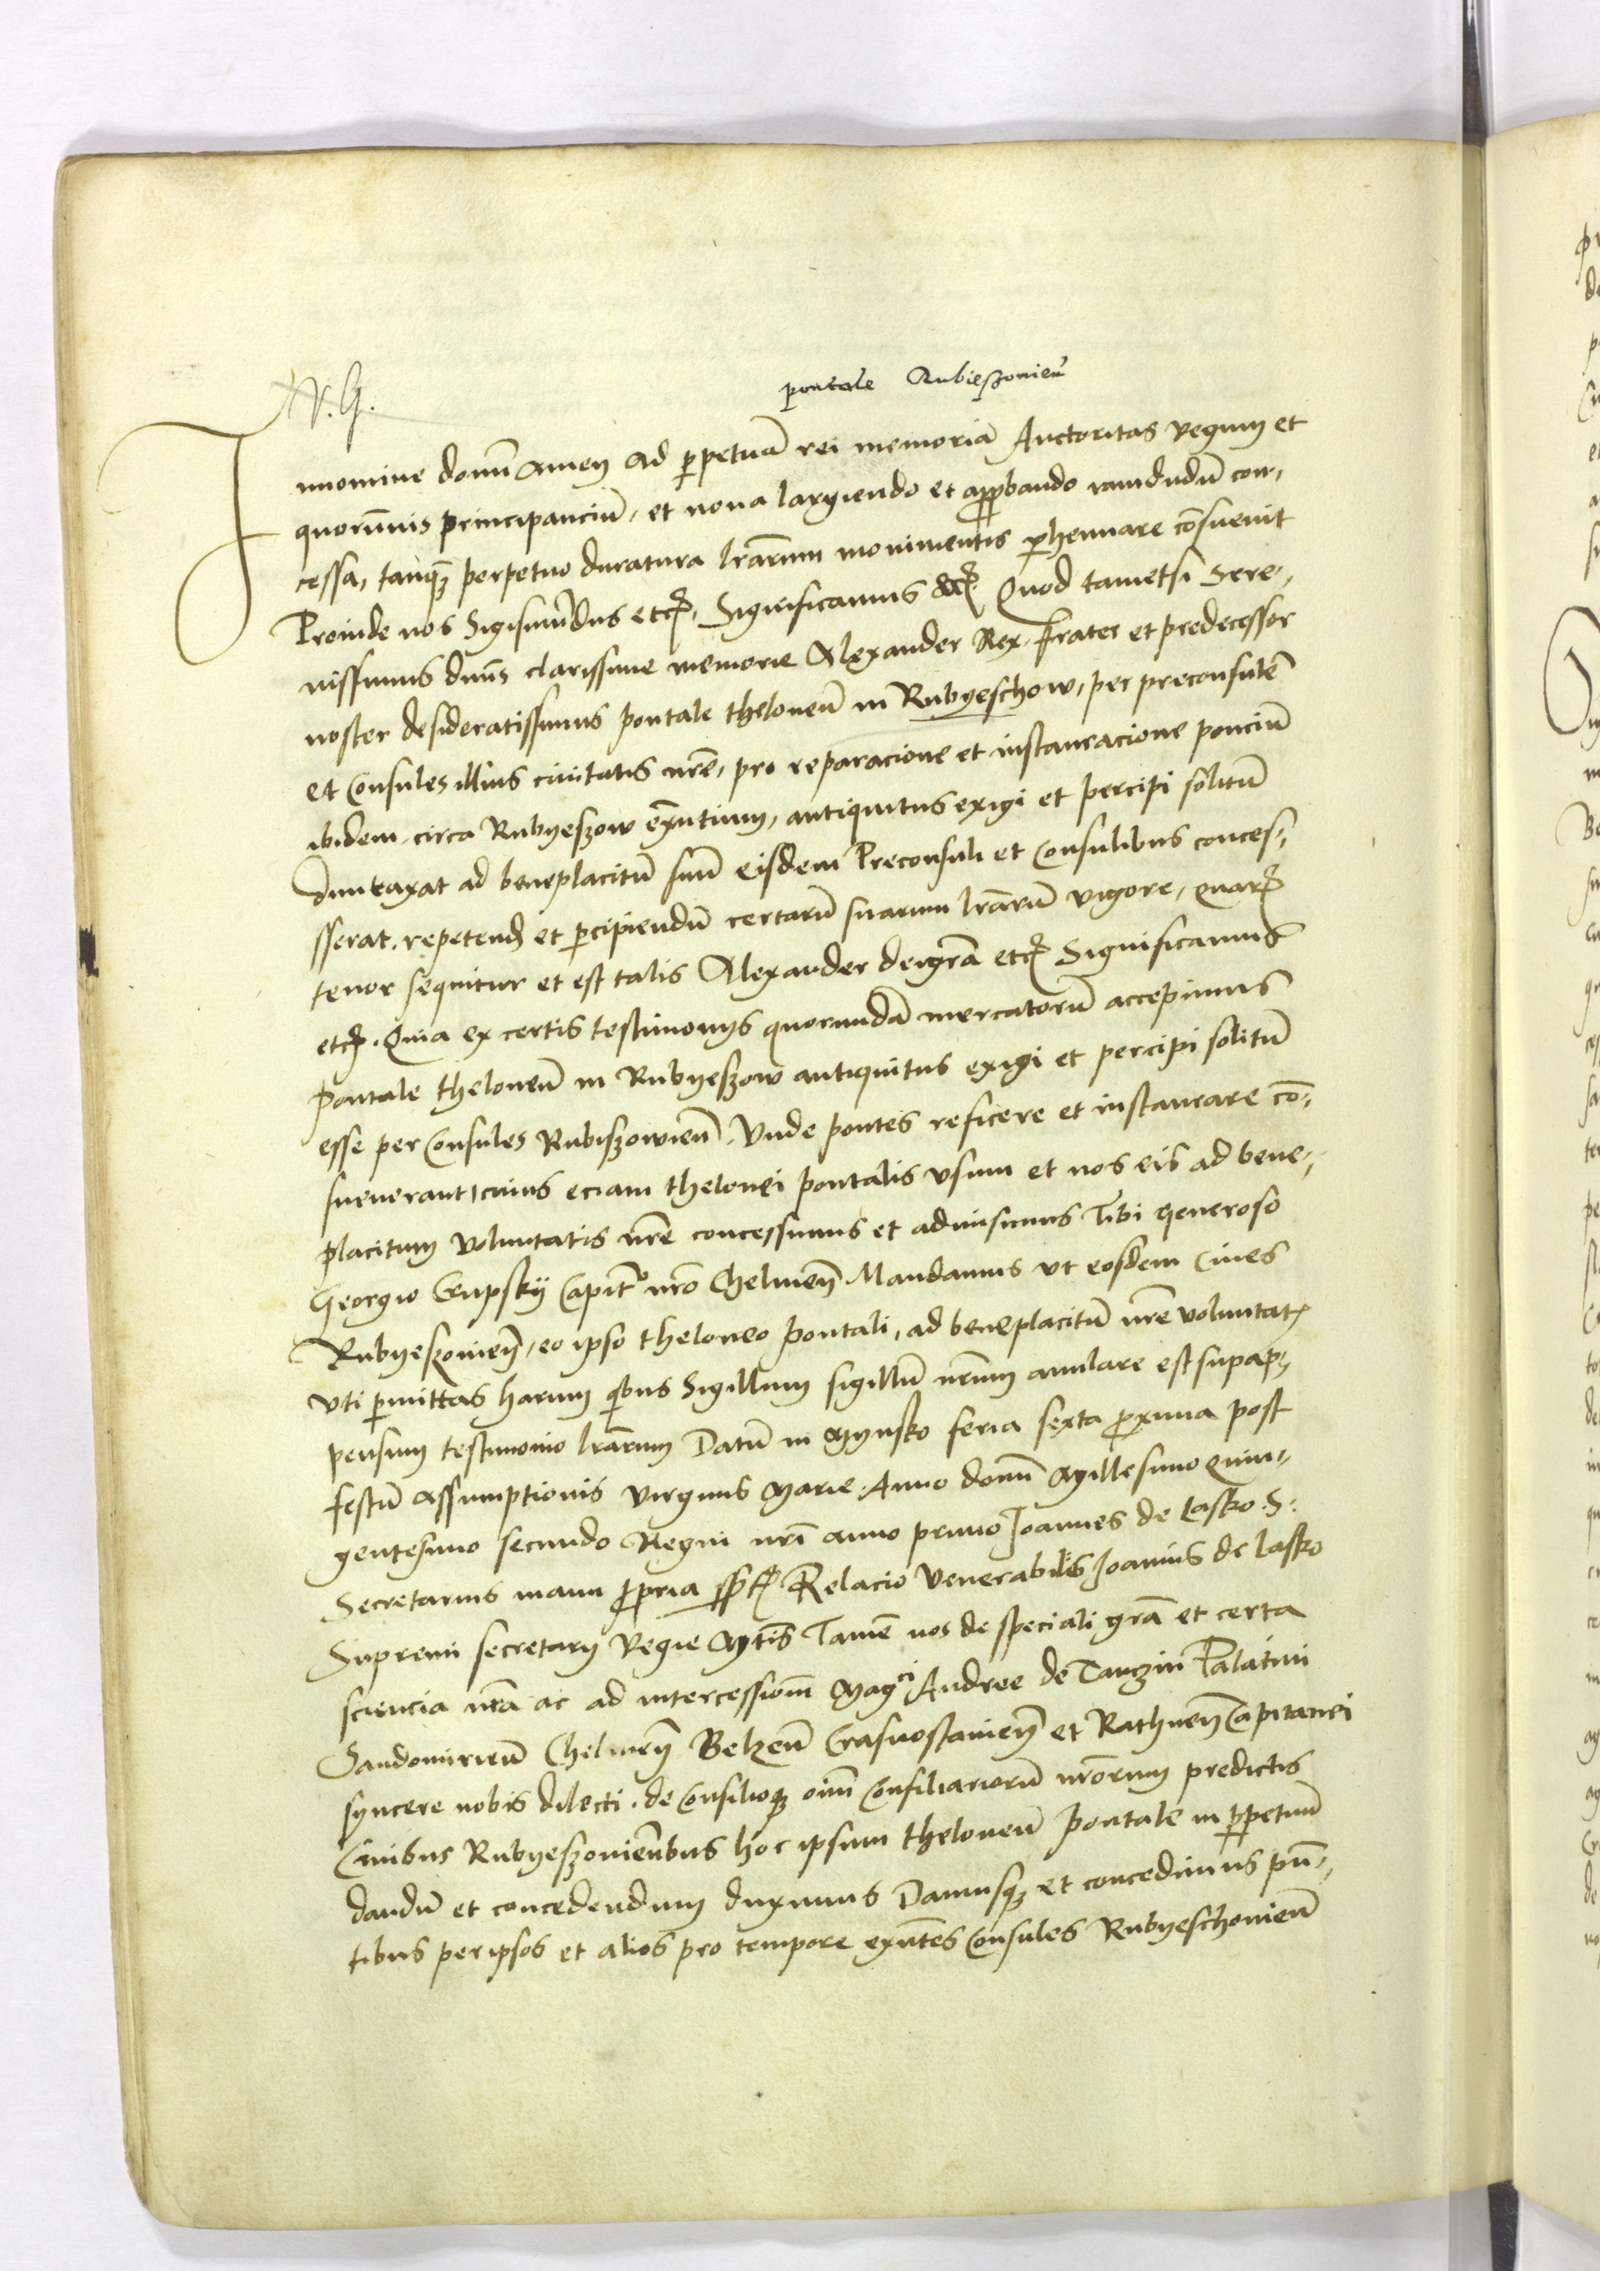 pontale Rubieszovien̄
In nomine domī amen Ad ꝑpetuā rei memoriā Auctoritas regum et
quorūvis principanciū, et nova largiendo et approbando iamdudū con-
cessa, tanqꝫ perpetuo duratura lr̄arum monimentis perhennare cōsuevit
Proinde nos Sigismūdus etc̄. Significamus etc̄ Quod tametsi Sere-
nissimus dn̄us clarissime memorie Alexander Rex frater et predecessor
noster desideratissimus pontale theloneū in Rubyeschow, per preconsulē
et Consules illius civitatis nr̄e, pro reparacione et instauracione ponciū
ibidem circa Rubyeszow exn̄tium, antiquitus exigi et percipi solitū
duntaxat ad beneplacitū suū eisdem Preconsuli et Consulibus conces-
sserat. repetend̄ et ꝑcipiendū certarū suarum lr̄arū vigore, quar̄
tenor sequitur et est talis Alexander dei gr̄a etc̄ Significamus
etc̄. Quia ex certis testimonijs quorundā mercatorū accepimus
pontale theloneū in Rubyeszow antiquitus exigi et percipi solitū
esse per Consules Rubiszowien̄. Unde pontes reficere et instaurare cō-
sueverant, cuius eciam thelonei pontalis usum et nos eis ad bene-
placitum voluntatis nr̄e concessimus et admisimus Tibi generoso
Georgio Crupskij Capit̄o nr̄o Chelmen̄ Mandamus ut eosdem Cives
Rubyeszovien̄, eo ipso theloneo pontali, ad beneplacitū nr̄e voluntat̄
uti ꝑmittas harum quibus Sigillum sigillū nr̄um anulare est supap-
pensum testimonio lr̄arum Datū in Mynsko feria sexta ꝓxima post
festū Assumptionis virginis Marie. Anno domī Millesimo quin-
gentesimo secundo Regni nr̄i anno primo Joannes de Lasko. S.
Secretarius manu ꝓpria sspt̄ Relacio Venerabilis Joannis de Lasko
Supremi secretarij Regie Mt̄is Tamē nos de speciali gr̄a et certa
sciencia nr̄a ac ad intercessionē Mag.ci Andree de Tanczin Palatini
Sandomirien̄ Chelmen̄ Belzen̄ Crasnostavien̄ et Rathnen̄ Capitanei
syncere nobis dilecti. de Consilioqꝫ oīm Consiliariorū nr̄orum predictis
Civibus Rubyeszovien̄bus hoc ipsum theloneū pontale in ꝑpetuū
dandū et concedendum duximus Damusqꝫ et concedimus pn̄-
tibus per ipsos et alios pro tempore exn̄tes Consules Rubyeschovien̄